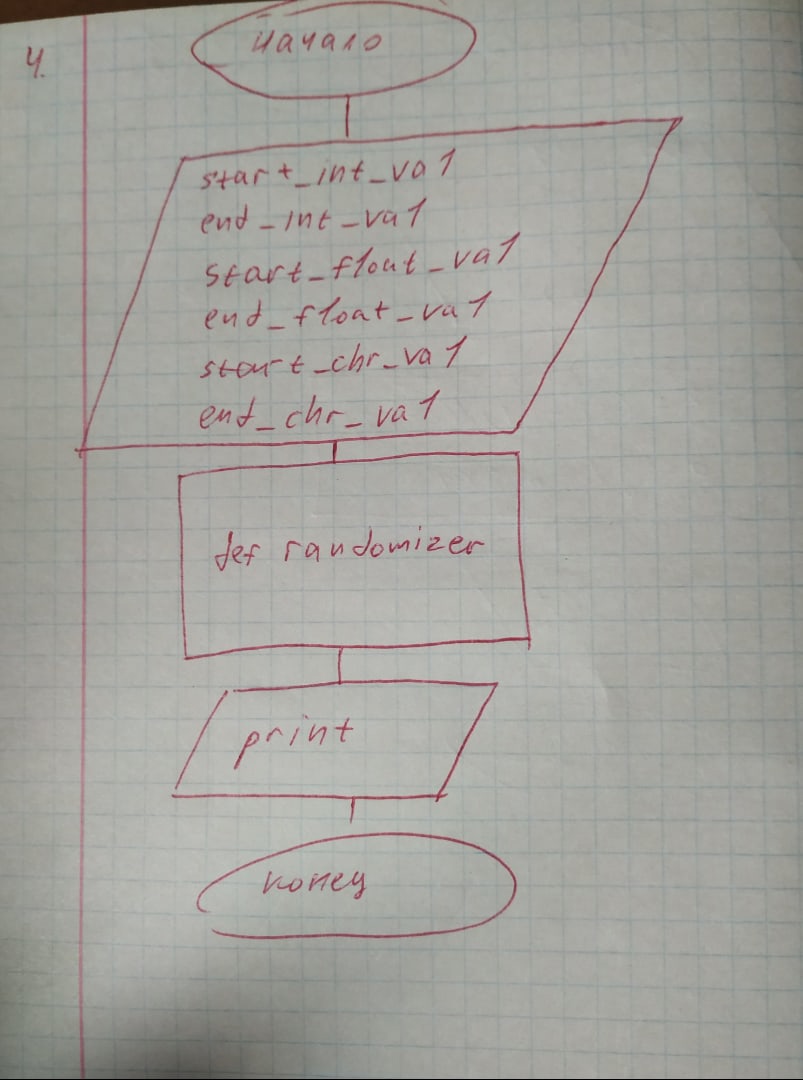 4.
начало
start_int_val
end_int_val
start_float_val
end_float_val
start_chr_val
end_chr_val
def randomizer
print
конец